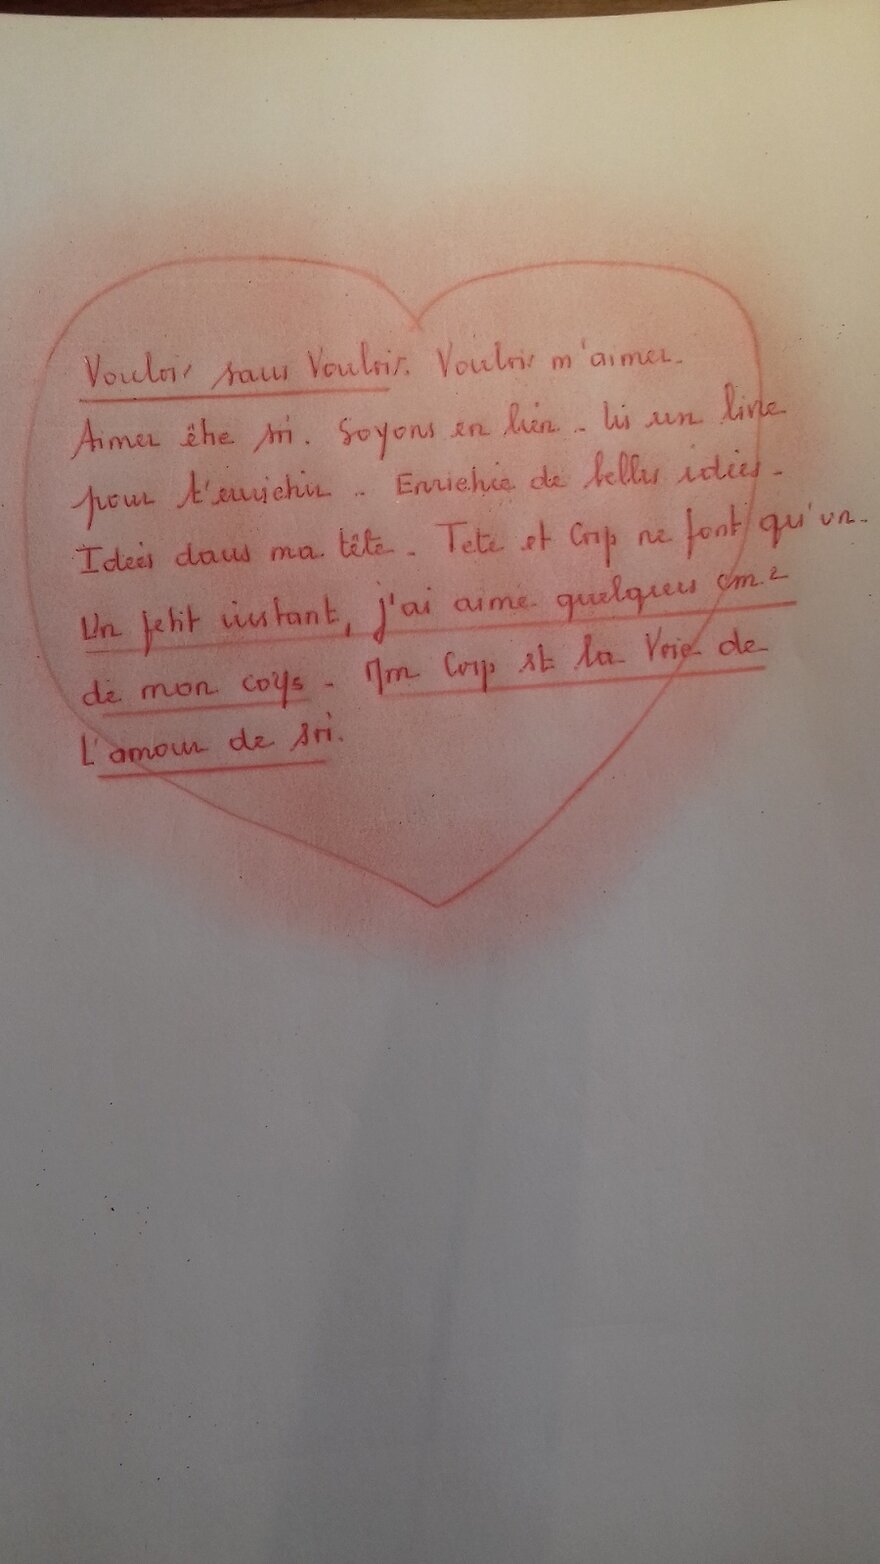 Vouloir sans Vouloir. Vouloir m'aimer.
Aimer être soi. Soyons en lien. Lis un livre
pour t'enrichir. Enrichie de belles idées.
Idées dans ma tête. Tete et Corp ne font qu'un.
Un petit instant, j'ai aimé quelques cm2
de mon corps. Mon Corp est la Voie de
L'amour de soi.